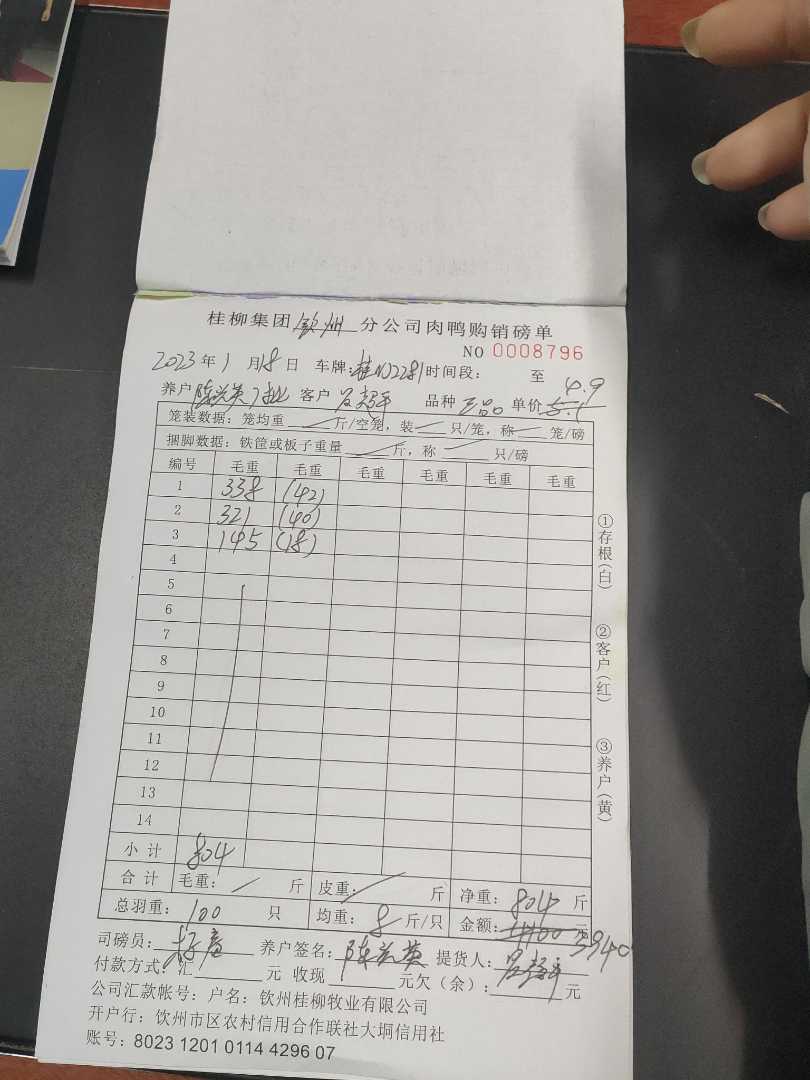 桂柳集团 钦州 分公司肉鸭购销磅单
NO 0008796
2023 年 1 月 18 日 车牌: 桂N02281 时间段: 至
4.9
养户 陈兰英 客户 品种 三品 单价
笼装数据: 笼均重 斤/空笼, 装 只/笼, 称 笼/磅
捆脚数据: 铁筐或板子重量 斤, 称 只/磅
编号 毛重 毛重 毛重 毛重 毛重 毛重
1 338 (42)
2 321 (40)
3 145 (18)
4
5
6
7
8
9
10
11
12
13
14
小计 804
合计 毛重: / 斤 皮重: / 斤 净重: 804 斤
总羽重: 100 只 均重: 8 斤/只 金额: 4100 元
3940
司磅员: 养户签名: 陈兰英 提货人:
付款方式: 汇 元 收现 元 欠(余): 元
公司汇款帐号: 户名: 钦州桂柳牧业有限公司
开户行: 钦州市区农村信用合作联社大垌信用社
账号: 8023 1201 0114 4296 07
①存根(白)
②客户(红)
③养户(黄)